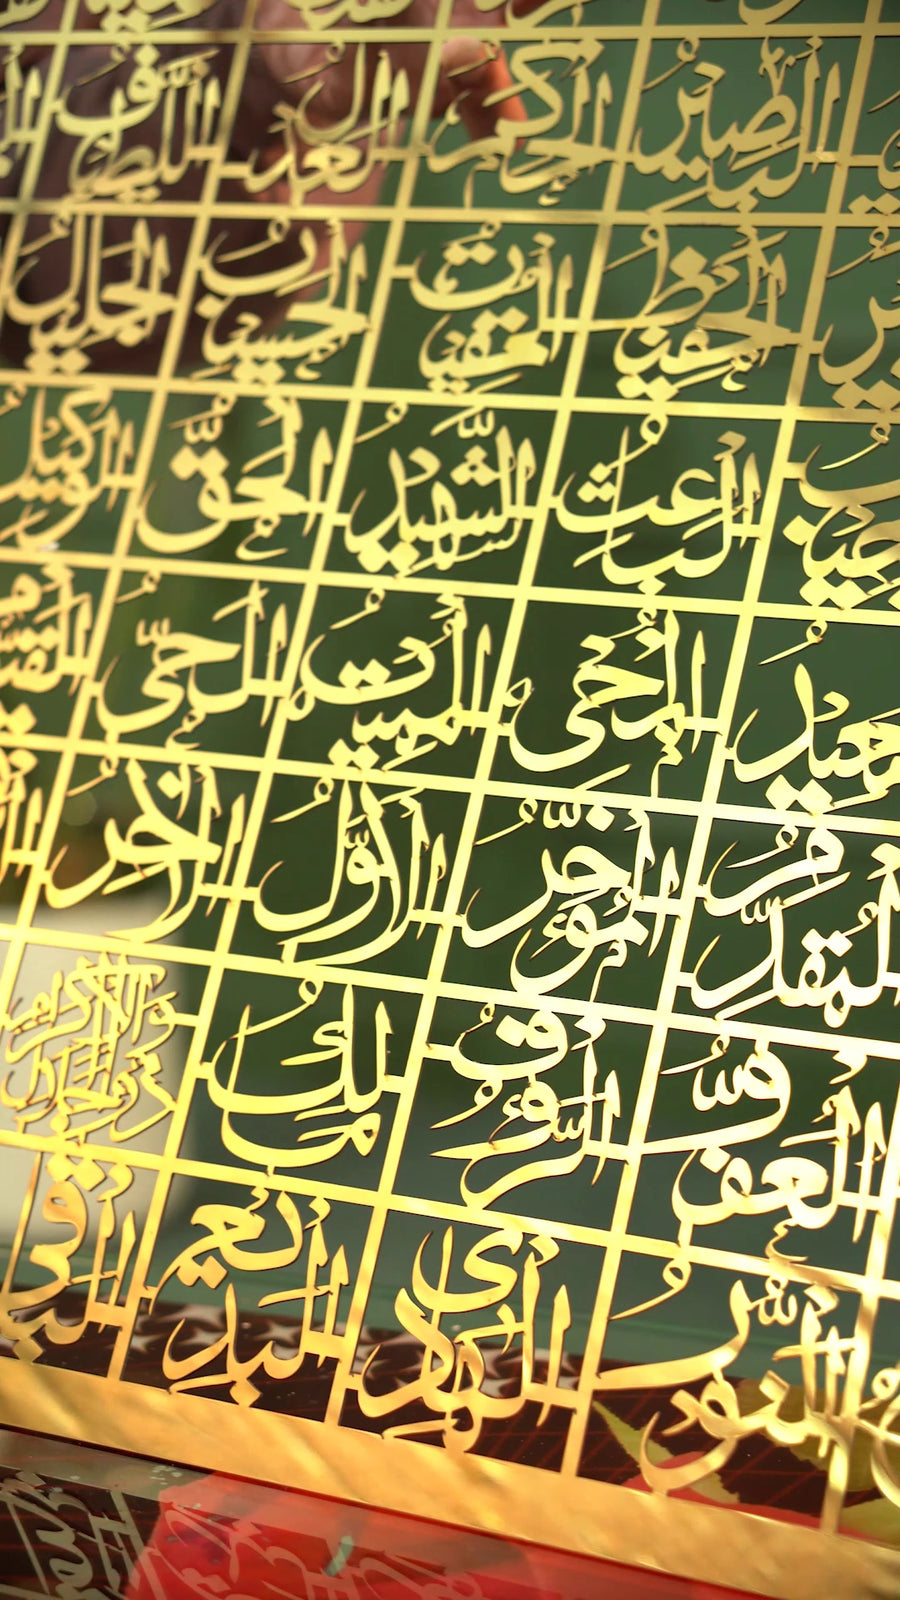 البَصِيرُ الحَكَمُ العَدْلُ اللَّطِيفُ
الحَفِيظُ المُقِيتُ الحَسِيبُ الجَلِيلُ
البَاعِثُ الشَّهِيدُ الحَقُّ الوَكِيلُ
المُحْيِي المُمِيتُ الحَيُّ
المُقَدِّمُ المُؤَخِّرُ الأَوَّلُ الآخِرُ
العَفُوُّ الرَّؤُوفُ مَالِكُ المُلْكِ ذُو الجَلَالِ وَالإِكْرَامِ
النُّورُ الهَادِي البَدِيعُ البَاقِي